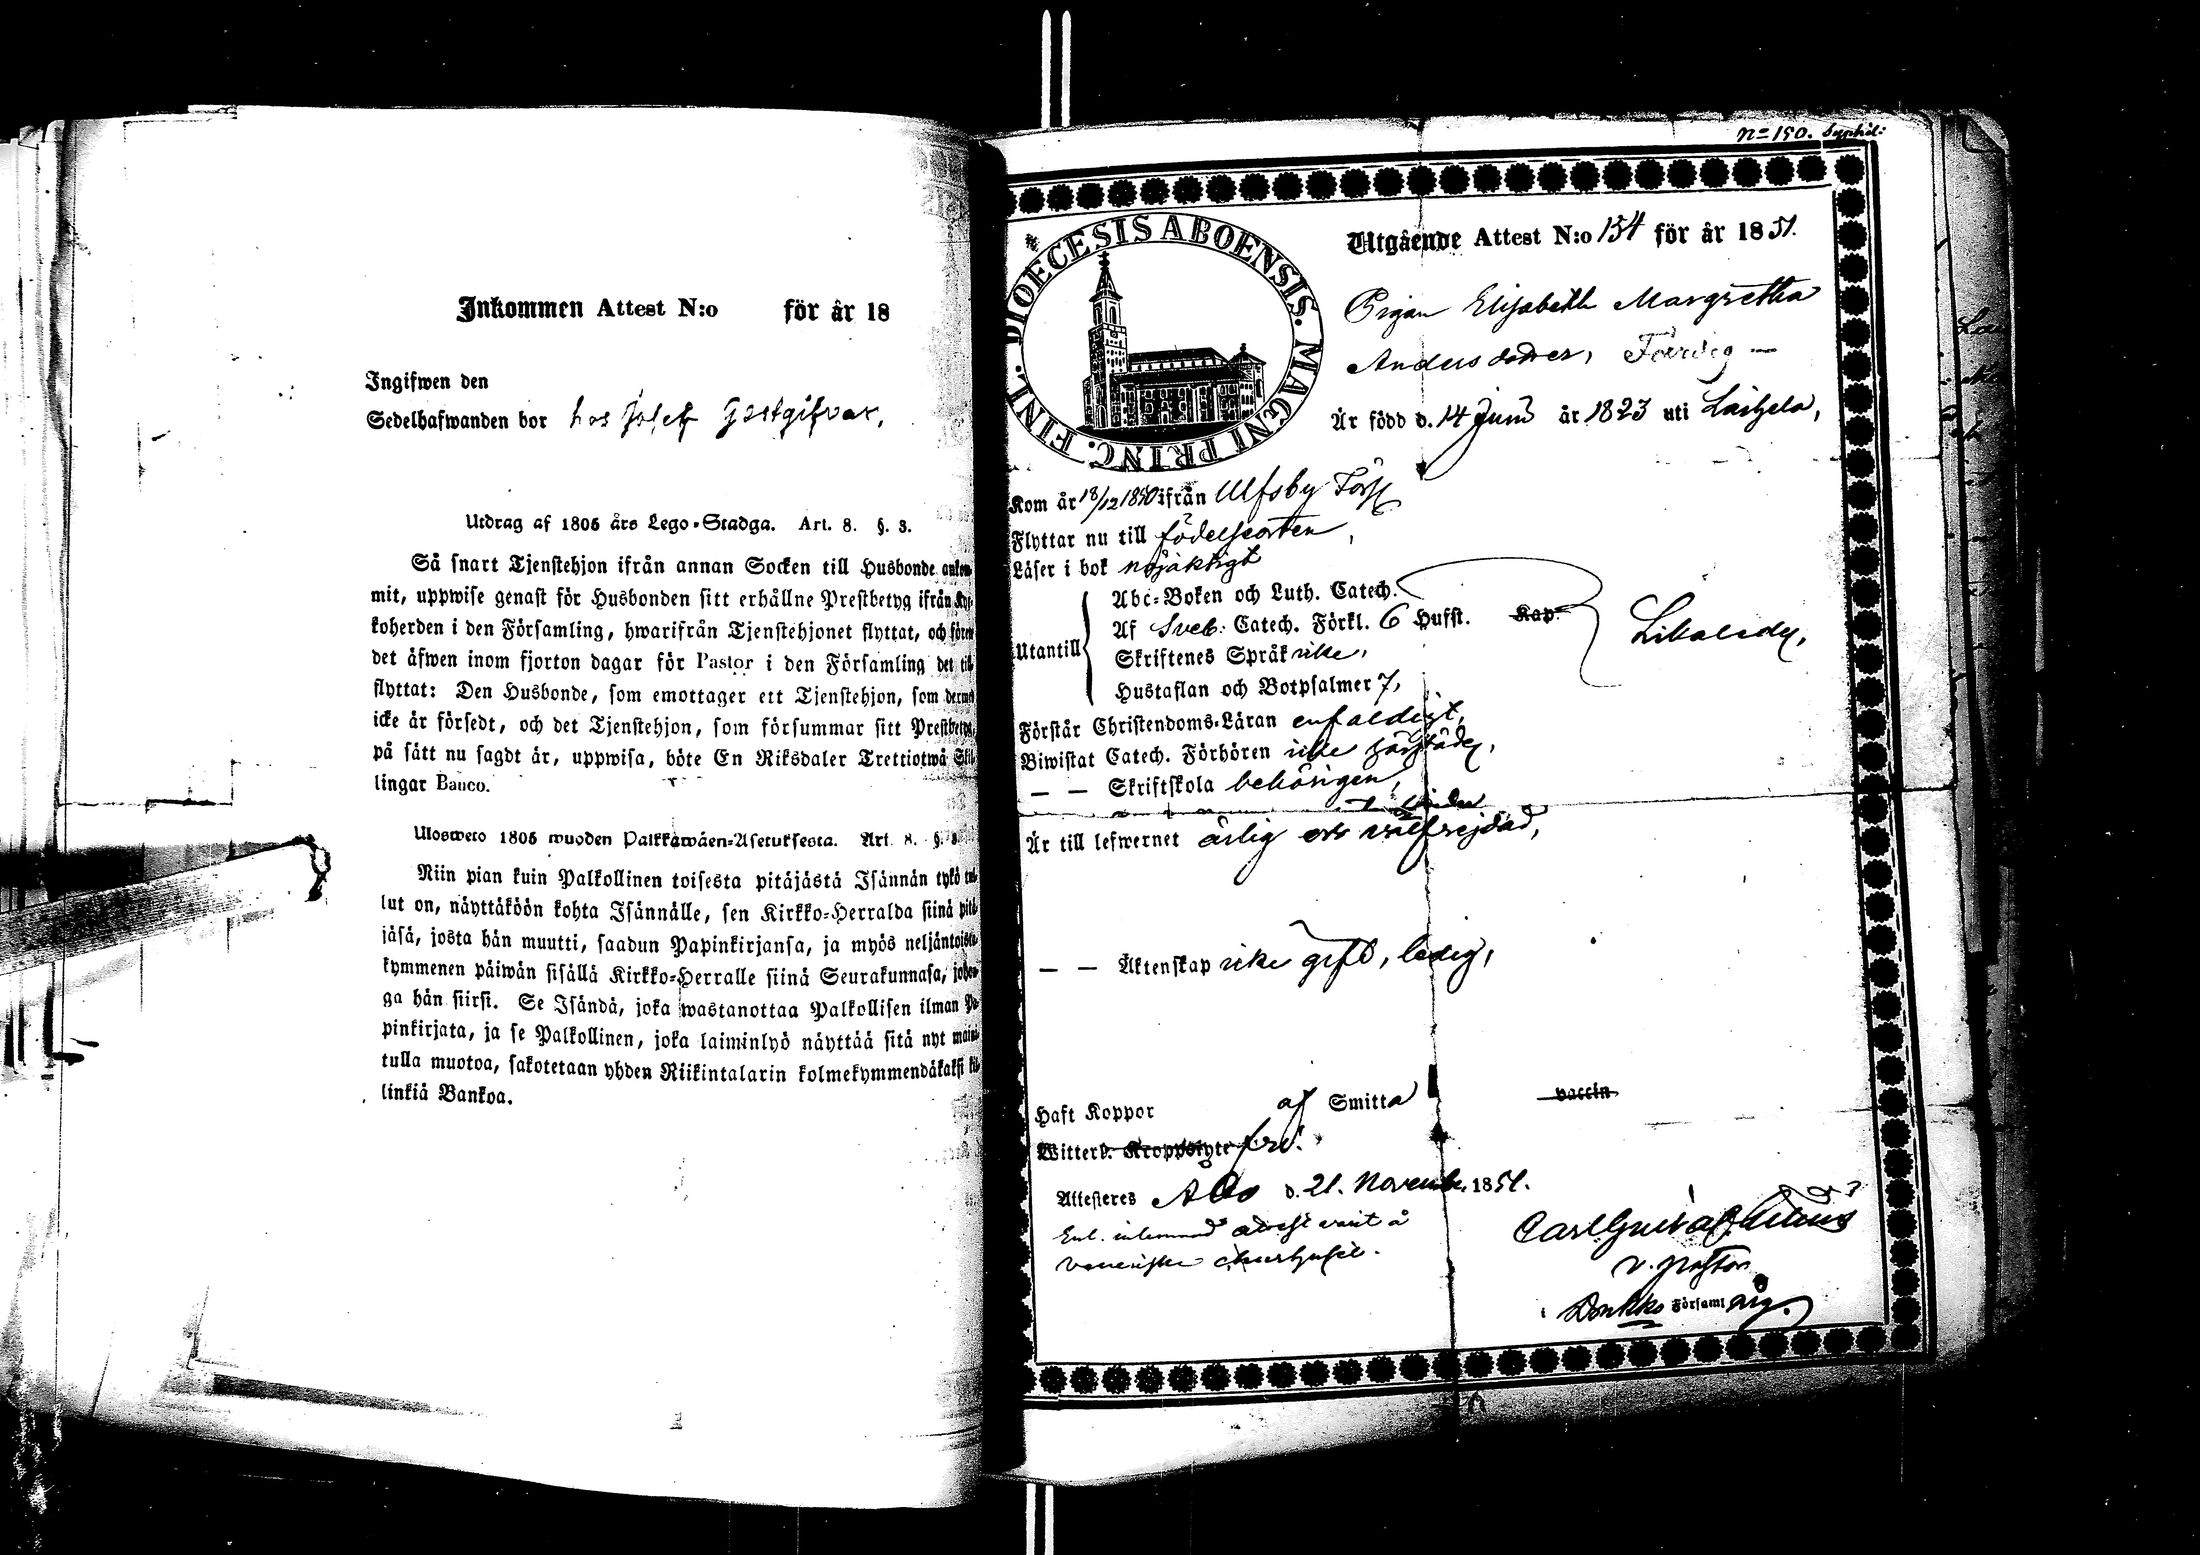 Inkommen Attest N:o för år 18
Ingifwen den
Sedelhafwanden bor hos Josef Gestgifvar,
Utdrag af 1805 års Lego-Stadga. Art. 8. §. 3.
Så snart Tjenstehjon ifrån annan Socken till Husbonde ankom-
mit, uppwise genast för Husbonden sitt erhållne Prestbetyg ifrån Kyr-
koherden i den Församling, hwarifrån Tjenstehjonet flyttat, och förete
det äfwen inom fjorton dagar för Pastor i den Församling det till-
flyttat: Den Husbonde, som emottager ett Tjenstehjon, som dermed
icke är försedt, och det Tjenstehjon, som försummar sitt Prestbetyg,
på sätt nu sagdt är, uppwisa, böte En Riksdaler Trettiotwå Skil-
lingar Banco.
Ulosweto 1805 wuoden Palkkawäen-Asetuksesta. Art. 8. §. 3.
Niin pian kuin Palkollinen toisesta pitäjästä Isännän tykö tul-
lut on, näyttäköön kohta Isännälle, sen Kirkko-Herralda siinä pitä-
jäsä, josta hän muutti, saadun Papinkirjansa, ja myös neljäntoista-
kymmenen päiwän sisällä Kirkko-Herralle siinä Seurakunnasa, johon-
ga hän siirsi. Se Isändä, joka wastanottaa Palkollisen ilman Pa-
pinkirjata, ja se Palkollinen, joka laiminlyö näyttää sitä nyt maini-
tulla muotoa, sakotetaan yhden Riikintalarin kolmekymmendäkaksi kil-
linkiä Bankoa.
N:o 150. Syphil:
DIOECESIS ABOENSIS. MAGNI PRINC. FINL.
Utgående Attest N:o 154 för år 1851.
Pigan Elisabeth Margretha
Andersdotter,
Är född d. 14 Junii år 1823 uti Laihela,
Kom år 18/12 1850 ifrån Ulfsby Förs
Flyttar nu till födelseorten,
Läser i bok nöjaktigt
Utantill
Abc-Boken och Luth. Catech.
Af Sveb. Catech. Förkl. 6 Hufst. Kap.
Skriftenes Språk icke,
Hustaflan och Botpsalmer 7,
Förstår Christendoms-Läran enfaldigt,
Biwistat Catech. Förhören icke
— — Skriftskola behörigen,
Är till lefwernet ärlig och välfrejdad,
— — Äktenskap icke gift, ledig,
Haft Koppor af Smitta vaccin
Witterl. Kroppslyte fri.
Attesteres Åbo d. 21. November 1851.
Enl. inlemnad attest varit å
veneriska Curhuset.
Carl Gust.
v. pastor
i Församl